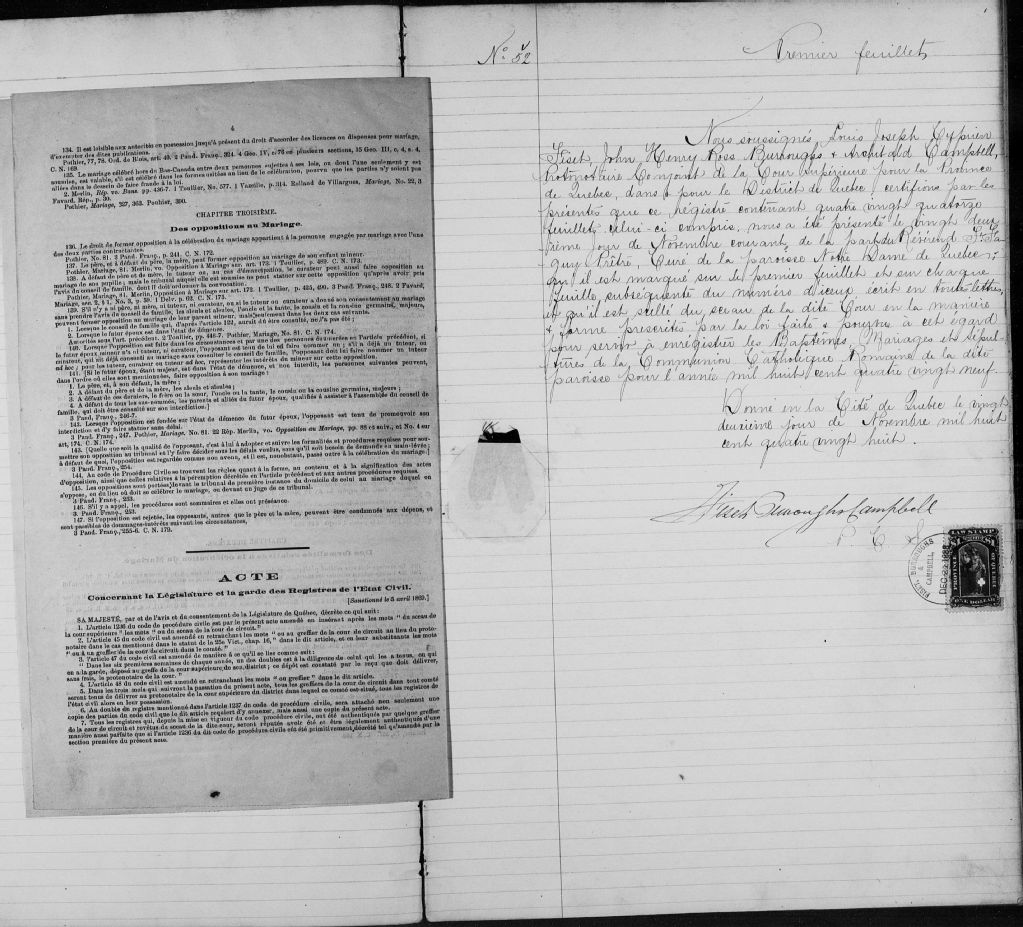 4
134. Il est loisible aux autorités en possession jusqu'à présent du droit d'accorder des licences ou dispenses pour mariage,
d'exempter des dites publications.
Pothier, 77, 78. Ord. de Blois, art. 40. 2 Pand. Franç. 324. 4 Geo. IV, c. 76 et plusieurs sections, 15 Geo. III, c. 4, s. 4,
C. N. 169.
135. Le mariage célébré hors du Bas-Canada entre deux personnes sujettes à ses lois, ou dont l'une seulement y est
soumise, est valable, s'il est célébré dans les formes usitées au lieu de la célébration, pourvu que les parties n'y soient pas
allées dans le dessein de faire fraude à la loi.
2 Merlin, Rép. vo. Bans pp. 436-7. 1 Toullier, No. 577. 1 Vazeille, p. 314. Rolland de Villargues, Mariage, No. 22, 3
Favard. Rép., p. 30.
Pothier, Mariage, 327, 363. Pouhier, 390.
CHAPITRE TROISIÈME.
Des oppositions au Mariage.
136. Le droit de former opposition à la célébration du mariage appartient à la personne engagée par mariage avec l'une
des deux parties contractantes.
Pothier, No. 81. 3 Pand. Franç., p. 241. C. N. 172.
137. Le père, et à défaut du père, la mère, peut former opposition au mariage de son enfant mineur.
Pothier, Mariage, 81. Merlin, vo. Opposition à Mariage sur art. 173. 1 Toullier, p. 489. C. N. 173.
138. A défaut de père et de mère, le tuteur ou, au cas d'émancipation, le curateur peut aussi faire opposition au
mariage de son pupille ; mais le tribunal auquel elle est soumise ne peut statuer sur cette opposition qu'après avoir pris
l'avis du conseil de famille, dont il doit ordonner la convocation.
Pothier, Mariage, 81. Merlin, Opposition à Mariage sur art. 172. 1 Toullier, p. 425, 490. 3 Pand Franç. 248. 2 Favard,
Mariage, sec. 2, § 1, No. 3, p. 59. 1 Delv. p. 62. C. N. 173.
139. S'il n'y a ni père, ni mère, ni tuteur, ni curateur, ou si le tuteur ou curateur a donné son consentement au mariage
sans prendre l'avis du conseil de famille, les aïeuls et aïeules, l'oncle et la tante, le cousin et la cousine germains, majeurs,
peuvent former opposition au mariage de leur parent mineur, mais seulement dans les deux cas suivants.
1. Lorsque le conseil de famille qui, d'après l'article 122, aurait dû être consulté, ne l'a pas été ;
2. Lorsque le futur époux est dans l'état de démence.
Autorités sous l'art. précédent. 2 Toullier, pp. 486-7. Pothier, Mariage, No. 81. C. N. 174.
140. Lorsque l'opposition est faite dans les circonstances et par une des personnes énumérées en l'article précédent, si
le futur époux mineur n'a ni tuteur, ni curateur, l'opposant est tenu de lui en faire nommer un ; s'il a déjà un tuteur, ou
curateur, qui ait déjà consenti au mariage sans consulter le conseil de famille, l'opposant doit lui faire nommer un tuteur
ad hoc ; pour les tuteur, curateur ou tuteur ad hoc, représenter les intérêts du mineur sur cette opposition.
141. [Si le futur époux, étant majeur, est dans l'état de démence, et non interdit, les personnes suivantes peuvent,
dans l'ordre où elles sont mentionnées, faire opposition à son mariage :
1. Le père, et, à son défaut, la mère ;
2. A défaut du père et de la mère, les aïeuls et aïeules ;
3. A défaut de ces derniers, le frère ou la sœur, l'oncle ou la tante, le cousin ou la cousine germains, majeurs ;
4. A défaut de tous les sus-nommés, les parents et alliés du futur époux, qualifiés à assister à l'assemblée du conseil de
famille, qui doit être consulté sur son interdiction.]
3 Pand. Franç., 246-7.
142. Lorsque l'opposition est fondée sur l'état de démence du futur époux, l'opposant est tenu de promouvoir son
interdiction et d'y faire statuer sans délai.
3 Pand. Franç., 247. Pothier, Mariage, No. 81. 22 Rép. Merlin, vo. Opposition au Mariage, pp. 88 et suiv., et No. 4 sur
art. 174. C. N. 174.
143. [Quelle que soit la qualité de l'opposant, c'est à lui à adopter et suivre les formalités et procédures requises pour soumettre son opposition au tribunal et l'y faire décider sous les délais voulus, sans qu'il soit besoin de demande en main-levée ;
à défaut de quoi, l'opposition est regardée comme non avenue, et il est, nonobstant, passé outre à la célébration du mariage.]
3 Pand. Franç., 254.
144. Au code de Procédure Civile se trouvent les règles quant à la forme, au contenu et à la signification des actes
d'opposition, ainsi que celles relatives à la péremption décrétée en l'article précédent et aux autres procédures requises.
145. Les oppositions sont portées devant le tribunal de première instance du domicile de celui au mariage duquel on
s'oppose, ou du lieu où doit se célébrer le mariage, ou devant un juge de ce tribunal.
3 Pand. Franç., 253.
146. S'il y a appel, les procédures sont sommaires et elles ont préséance.
3. Pand. Franç., 253.
147. Si l'opposition est rejetée, les opposants, autres que le père et la mère, peuvent être condamnés aux dépens, et
sont passibles de dommages-intérêts suivant les circonstances,
3 Pand. Franç., 255-6. C. N. 179.
ACTE
Concernant la Législature et la garde des Registres de l'Etat Civil.
[Sanctionné le 5 avril 1869.]
SA MAJESTÉ, par et de l'avis et du consentement de la Législature de Québec, décrète ce qui suit:
1. L'article 1236 du code de procédure civile est par le présent acte amendé en insérant après les mots " du sceau de
la cour supérieure " les mots " ou du sceau de la cour de circuit."
2. L'article 45 du code civil est amendé en retranchant les mots " ou au greffier de la cour de circuit au lieu du protonotaire dans le cas mentionné dans le statut de la 25e Vict., chap. 16," dans le dit article, et en leur substituant les mots
" ou à un greffier de la cour de circuit dans le comté."
3. l'article 47 du code civil est amendé de manière à ce qu'il se lise comme suit:
" Dans les six premières semaines de chaque année, un des doubles est à la diligence de celui qui les a tenus, ou qui
en a la garde, déposé au greffe de la cour supérieure de son district ; ce dépôt est constaté par le reçu que doit délivrer,
sans frais, le protonotaire de la cour. "
4. L'article 48 du code civil est amendé en retranchant les mots " ou greffier " dans le dit article.
5. Dans les trois mois qui suivront la passation du présent acte, tous les greffiers de la cour de circuit dans tout comté
seront tenus de délivrer au protonotaire de la cour supérieure du district dans lequel ce comté est situé, tous les registres de
l'état civil alors en leur possession.
6. Au double du registre mentionné dans l'article 1237 du code de procédure civile, sera attaché non seulement une
copie des parties du code civil que le dit article requiert d'y annexer, mais aussi une copie du présent acte.
7. Tous les registres qui, depuis la mise en vigueur du code procédure civile, ont été authentiqués par quelque greffier
de la cour de circuit et revêtus du sceau de la dite cour, seront réputés avoir été et être légalement authentiqués d'une
manière aussi parfaite que si l'article 1236 du dit code de procédure civile eût été primitivement décrété tel qu'amendé par la
section première du présent acte.
No 52
Premier feuillet
Nous soussignés, Louis Joseph Cyprien
Fiset, John Henry Ross Burroughs & Archibald Campbell,
Protonotaire Conjoint de la Cour Supérieure pour la Province
de Quebec, dans & pour le District de Quebec, certifions par les
présentes que ce régistre contenant quatre vingt quatorze
feuillets, celui-ci compris, nous a été présenté le vingt deux
ième jour de Novembre courant, de la part du Révérend
Prêtre, Curé de la paroisse Notre Dame de Quebec;
qu'il est marqué sur le premier feuillet et sur chaque
feuille subséquente du numéro d'iceux écrit en toutes lettres,
et qu'il est scellé du sceau de la dite Cour en la manière
& forme prescrites par la loi faite & pourvue à cet égard
pour servir à enregistrer les Baptêmes, Mariages et Sépultures de la Communion Catholique Romaine de la dite
paroisse pour l'année mil huit cent quatre vingt neuf.
Donné en la Cité de Quebec le vingt
deuxième jour de Novembre mil huit
cent quatre vingt huit.
Fiset Burroughs Campbell
P. C. S.
FISET, BURROUGHS & CAMPBELL
DEC 22 1888
LAW STAMP
PROVINCE OF QUEBEC
$1
ONE DOLLAR